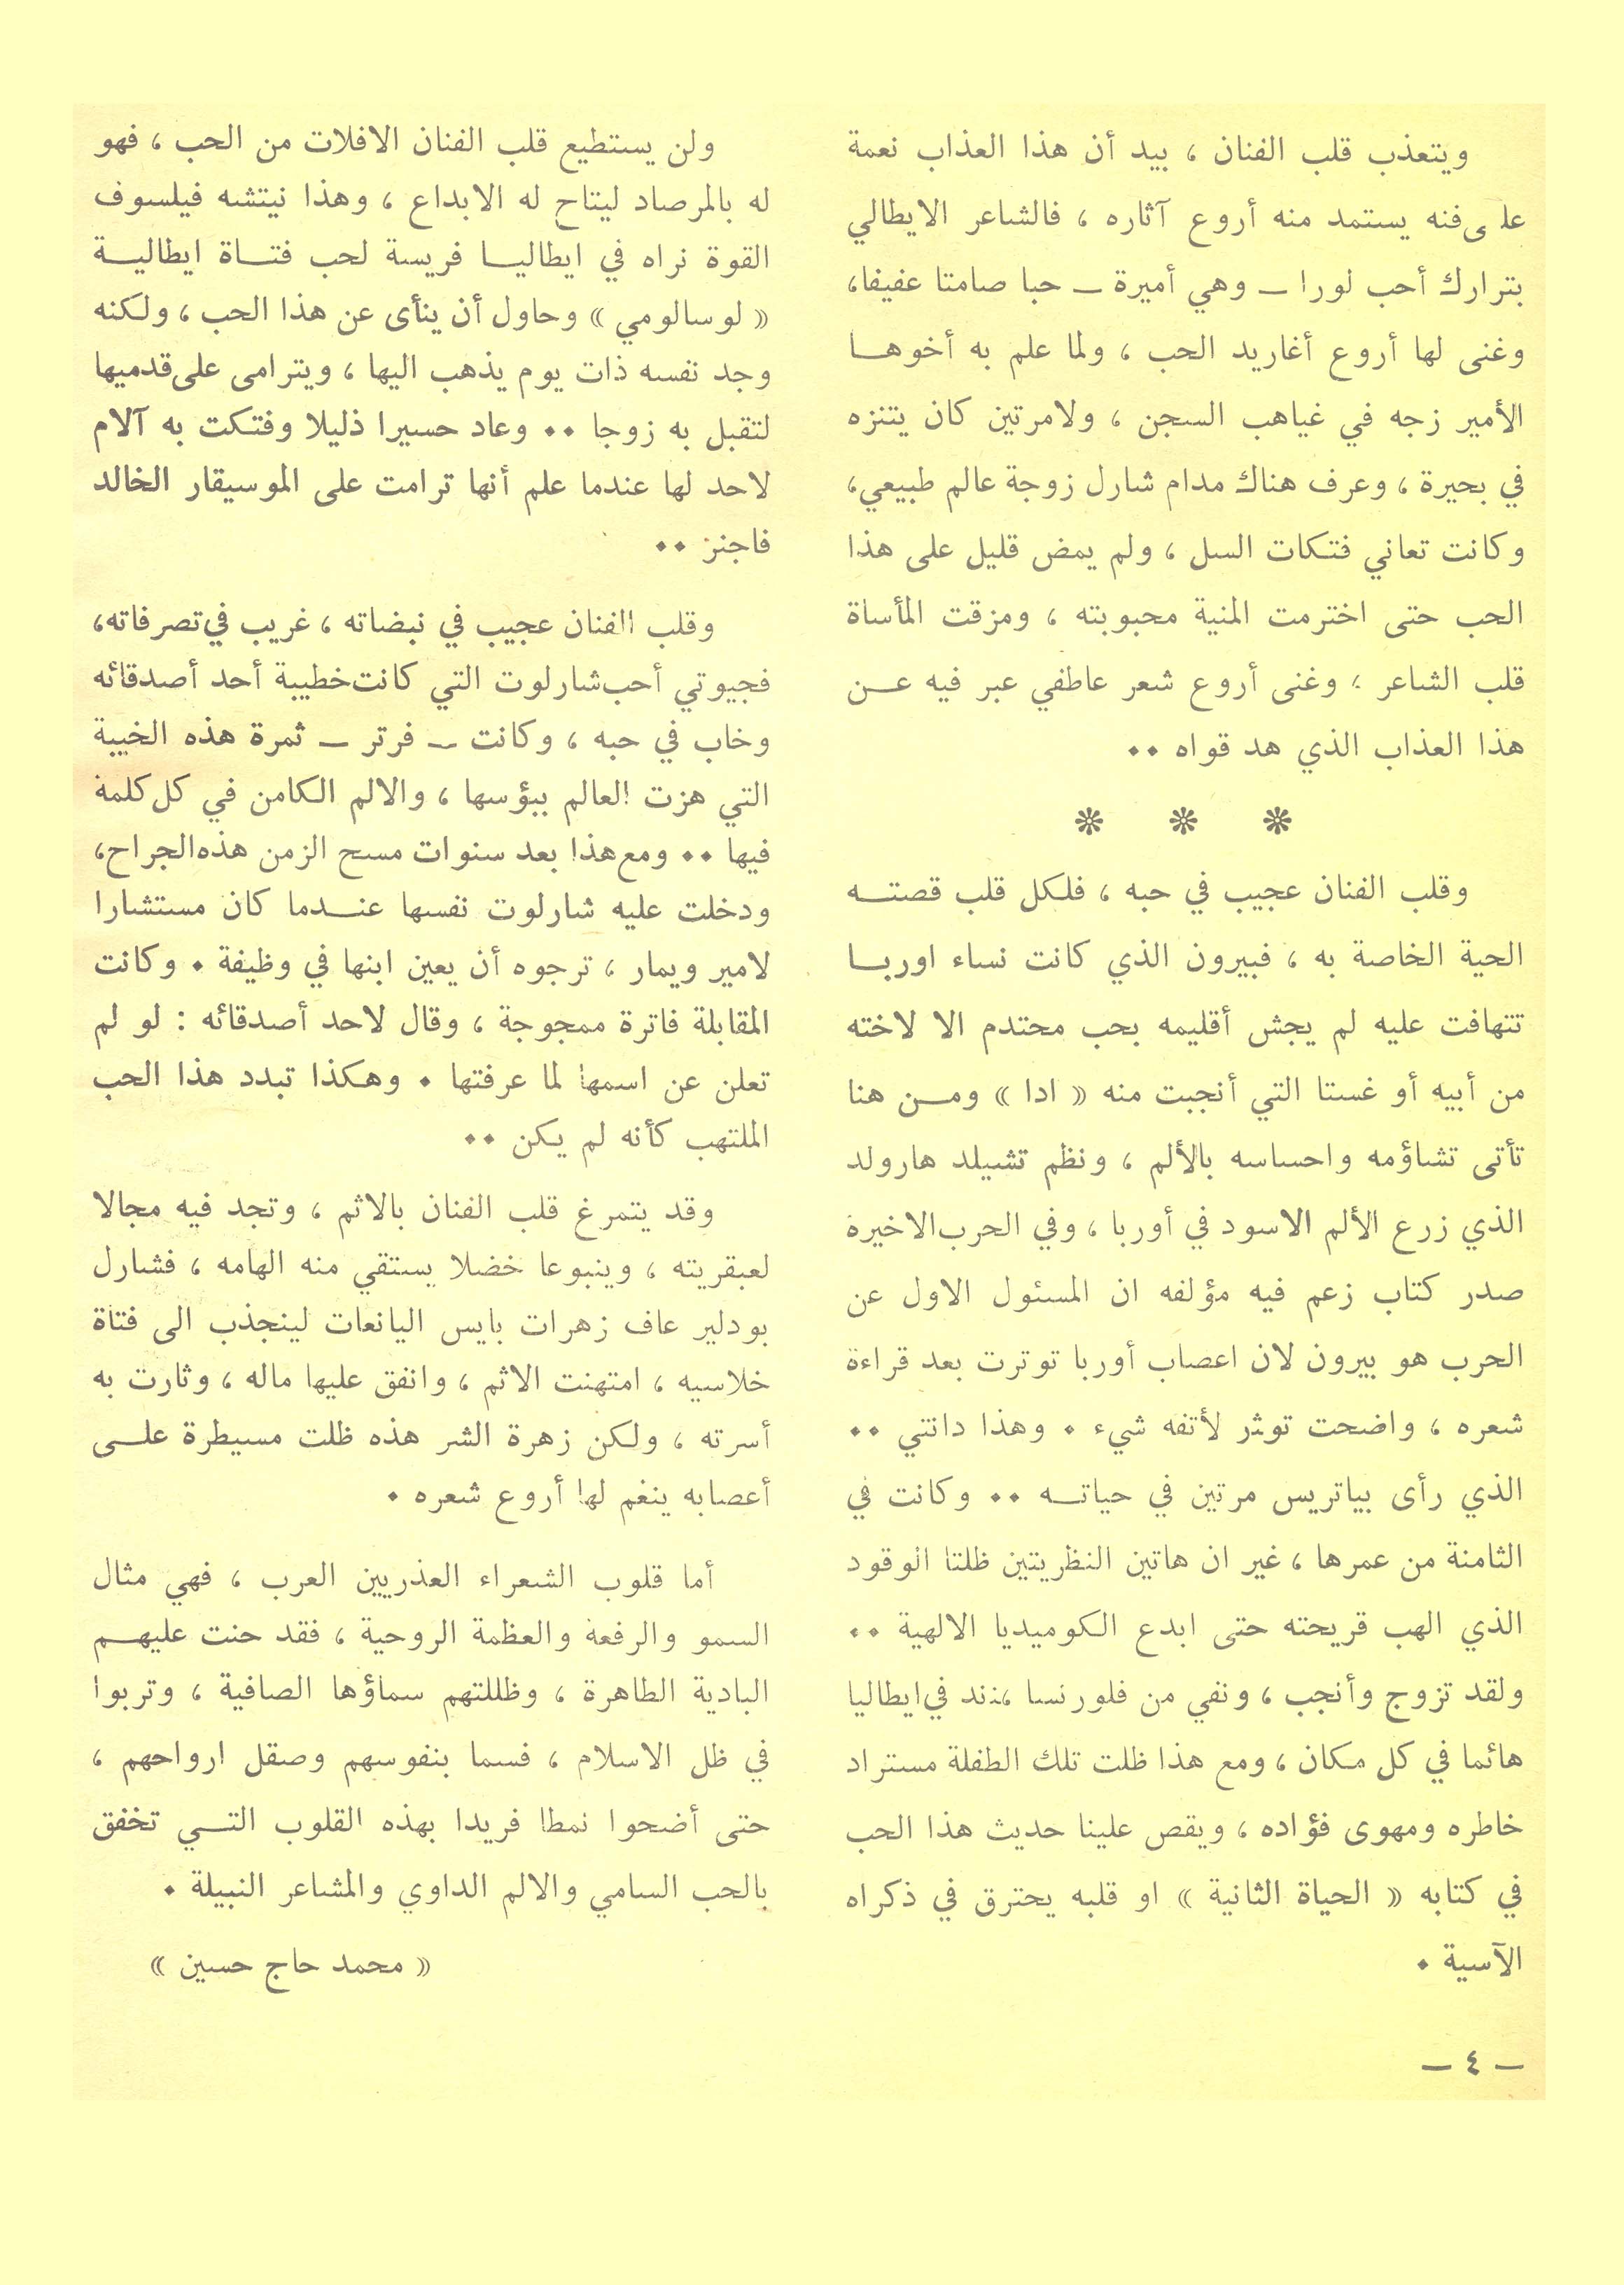 ويتعذب قلب الفنان ، بيد أن هذا العذاب نعمة
على فنه يستمد منه أروع آثاره ، فالشاعر الايطالي
بترارك أحب لورا ــ وهي أميرة ــ حبا صامتا عفيفا،
وغنى لها أروع أغاريد الحب ، ولما علم به أخوهـا
الأمير زجه في غياهب السجن ، ولامرتين كان يتنزه
في بحيرة ، وعرف هناك مدام شارل زوجة عالم طبيعي،
وكانت تعاني فتكات السل ، ولم يمض قليل على هذا
الحب حتى اخترمت المنية محبوبته ، ومزقت المأساة
قلب الشاعر ، وغنى أروع شعر عاطفي عبر فيه عـن
هذا العذاب الذي هد قواه ..
❊ ❊ ❊
وقلب الفنان عجيب في حبه ، فلكل قلب قصتـه
الحية الخاصة به ، فبيرون الذي كانت نساء اوربـا
تتهافت عليه لم يجش أقليمه بحب محتدم الا لاخته
من أبيه أو غستا التي أنجبت منه « ادا » ومـن هنا
تأتى تشاؤمه واحساسه بالألم ، ونظم تشيلد هارولد
الذي زرع الألم الاسود في أوربا ، وفي الحرب الاخيرة
صدر كتاب زعم فيه مؤلفه ان المسئول الاول عن
الحرب هو بيرون لان اعصاب أوربا توترت بعد قراءة
شعره ، واضحت توثر لأتفه شيء . وهذا دانتي ..
الذي رأى بياتريس مرتين في حياتـه .. وكانت في
الثامنة من عمرها ، غير ان هاتين النظريتين ظلتا الوقود
الذي الهب قريحته حتى ابدع الكوميديا الالهية ..
ولقد تزوج وأنجب ، ونفي من فلورنسا في ايطاليا
هائما في كل مكان ، ومع هذا ظلت تلك الطفلة مستراد
خاطره ومهوى فؤاده ، ويقص علينا حديث هذا الحب
في كتابه « الحياة الثانية » او قلبه يحترق في ذكراه
الآسية .
ــ ٤ ــ
ولن يستطيع قلب الفنان الافلات من الحب ، فهو
له بالمرصاد ليتاح له الابداع ، وهذا نيتشه فيلسوف
القوة نراه في ايطاليـا فريسة لحب فتـاة ايطاليـة
« لو سالومي » وحاول أن ينأى عن هذا الحب ، ولكنه
وجد نفسه ذات يوم يذهب اليها ، ويترامى على قدميها
لتقبل به زوجا .. وعاد حسيرا ذليلا وفتكت به آلام
لاحد لها عندما علم أنها ترامت على الموسيقار الخالد
فاجنز ..
وقلب الفنان عجيب في نبضاته ، غريب في تصرفاته،
فجيوتي أحب شارلوت التي كانت خطيبة أحد أصدقائه
وخاب في حبه ، وكانت ــ فرتر ــ ثمرة هذه الخيبة
التي هزت العالم ببؤسها ، والالم الكامن في كل كلمة
فيها .. ومع هذا بعد سنوات مسح الزمن هذه الجراح،
ودخلت عليه شارلوت نفسها عنـدما كان مستشارا
لامير ويمار ، ترجوه أن يعين ابنها في وظيفة . وكانت
المقابلة فاترة ممجوجة ، وقال لاحد أصدقائه : لو لم
تعلن عن اسمها لما عرفتها . وهكذا تبدد هذا الحب
الملتهب كأنه لم يكن ..
وقد يتمرغ قلب الفنان بالاثم ، وتجد فيه مجالا
لعبقريته ، وينبوعا خضلا يستقي منه الهامه ، فشارل
بودلير عاف زهرات بايس اليانعات لينجذب الى فتاة
خلاسيه ، امتهنت الاثم ، وانفق عليها ماله ، وثارت به
أسرته ، ولكن زهرة الشر هذه ظلت مسيطرة علـى
أعصابه ينغم لها أروع شعره .
أما قلوب الشعراء العذريين العرب ، فهي مثال
السمو والرفعة والعظمة الروحية ، فقد حنت عليهـم
البادية الطاهرة ، وظللتهم سماؤها الصافية ، وتربوا
في ظل الاسلام ، فسما بنفوسهم وصقل ارواحهم ،
حتى أضحوا نمطا فريدا بهذه القلوب التـي تخفق
بالحب السامي والالم الداوي والمشاعر النبيلة .
« محمد حاج حسين »